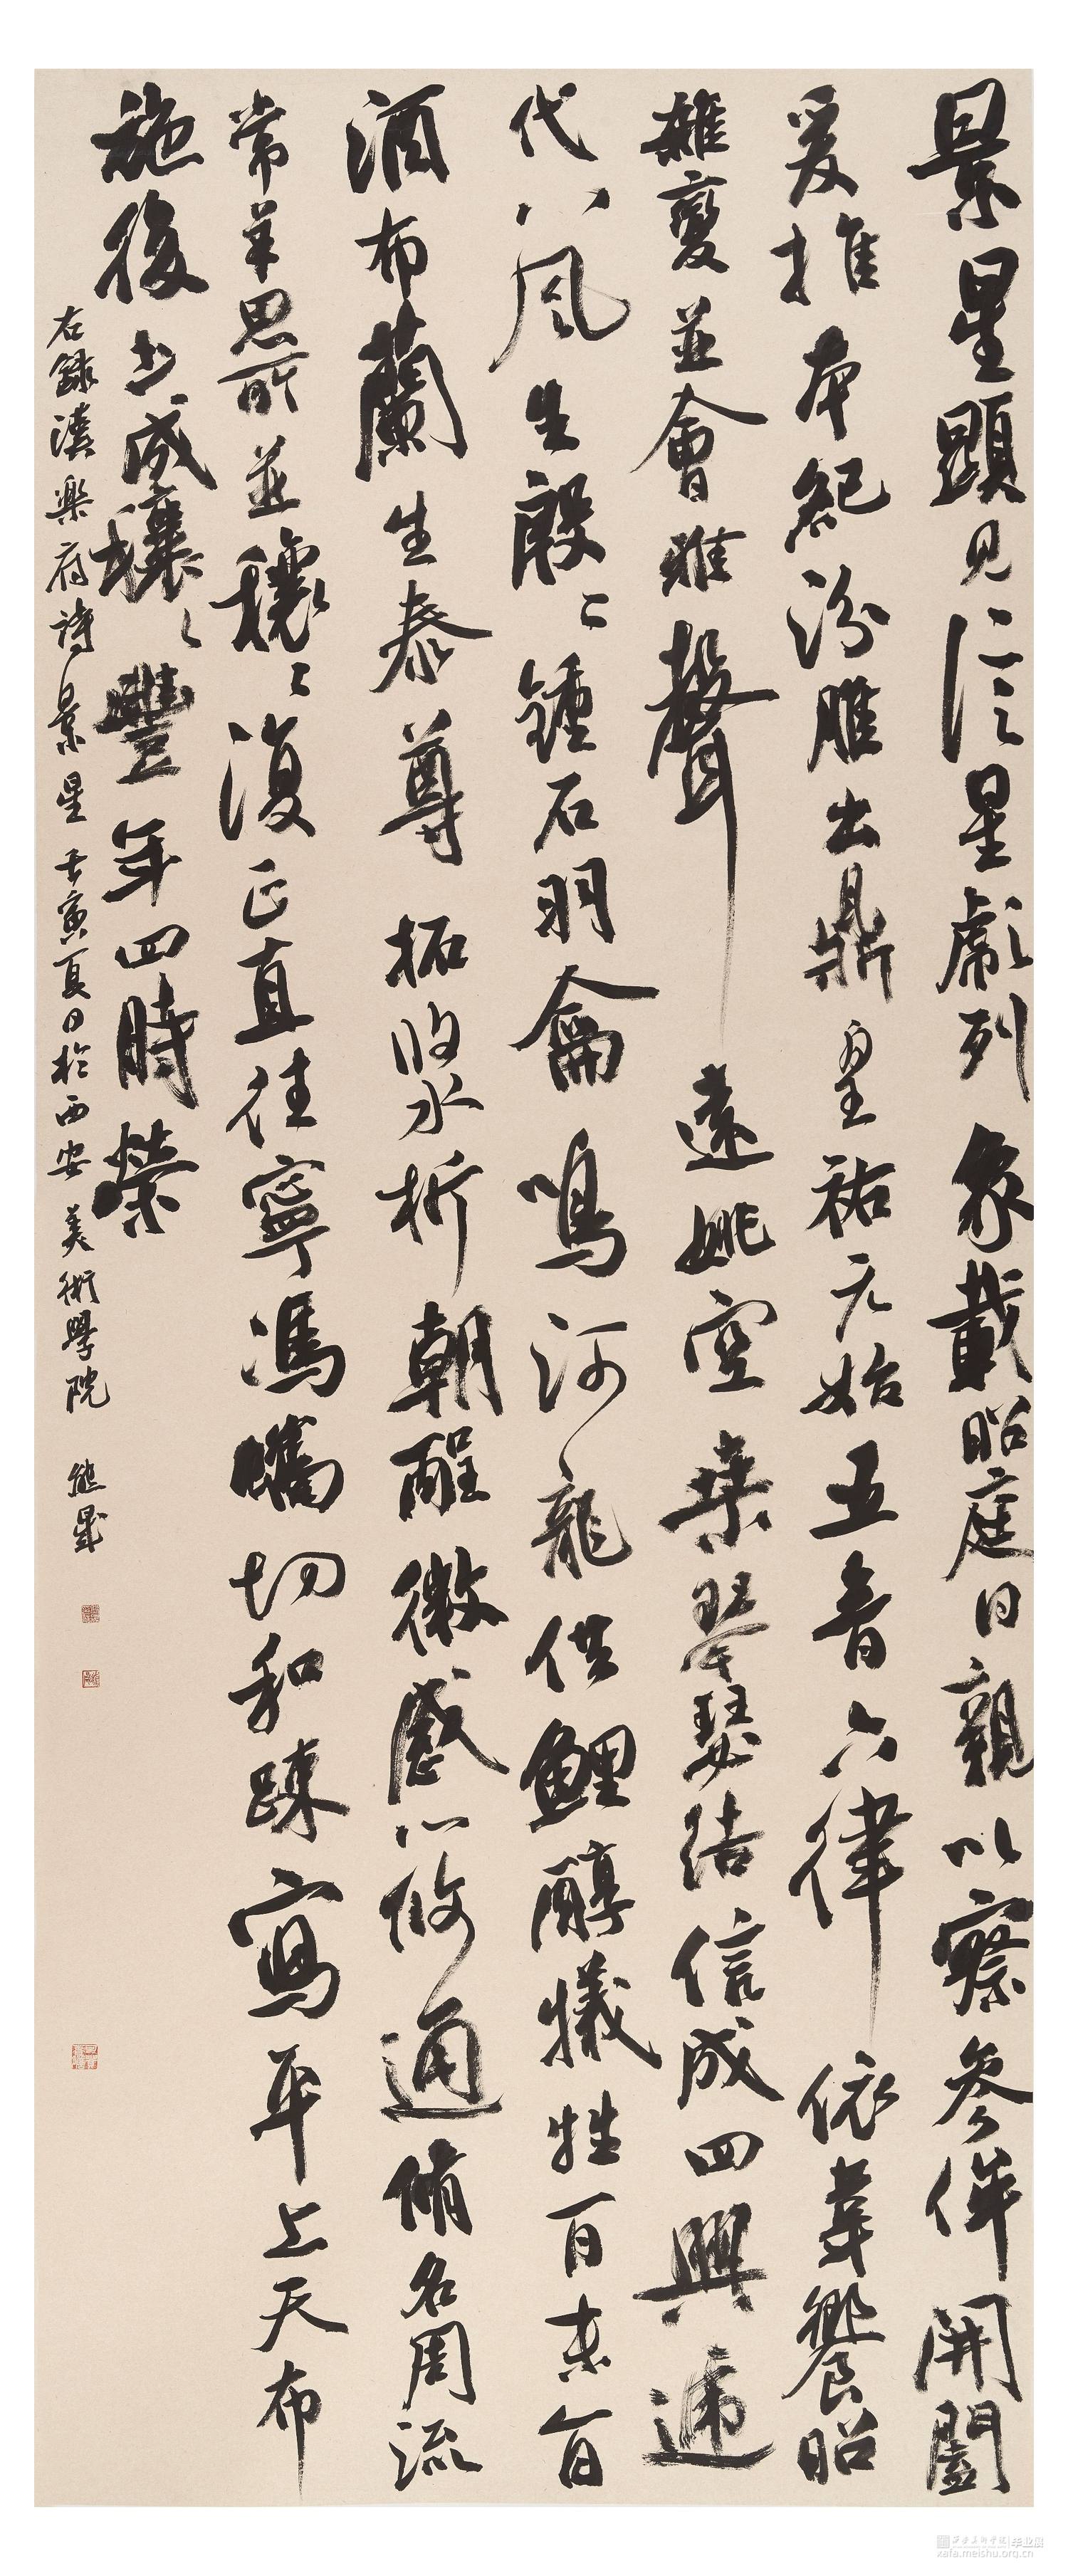 景星顯見信星彪列象載昭庭日親以察參侔開闔
爰推本紀汾脽出鼎皇祐元始五音六律依韋饗昭
雜變並會雅聲遠姚空桑琴瑟結信成四興遞
代八風生殷〻鍾石羽龠鳴河龍供鯉醇犧牲百末旨
酒布蘭生泰尊柘漿析朝酲微感心攸通脩名周流
常羊思所並穰〻復正直往寧馮蠵切和疎寫平上天布
施後土成穰〻豐年四時榮
右錄漢樂府詩景星壬寅夏日於西安美術學院
西安美術學院 毕业展
xafa.meishu.org.cn